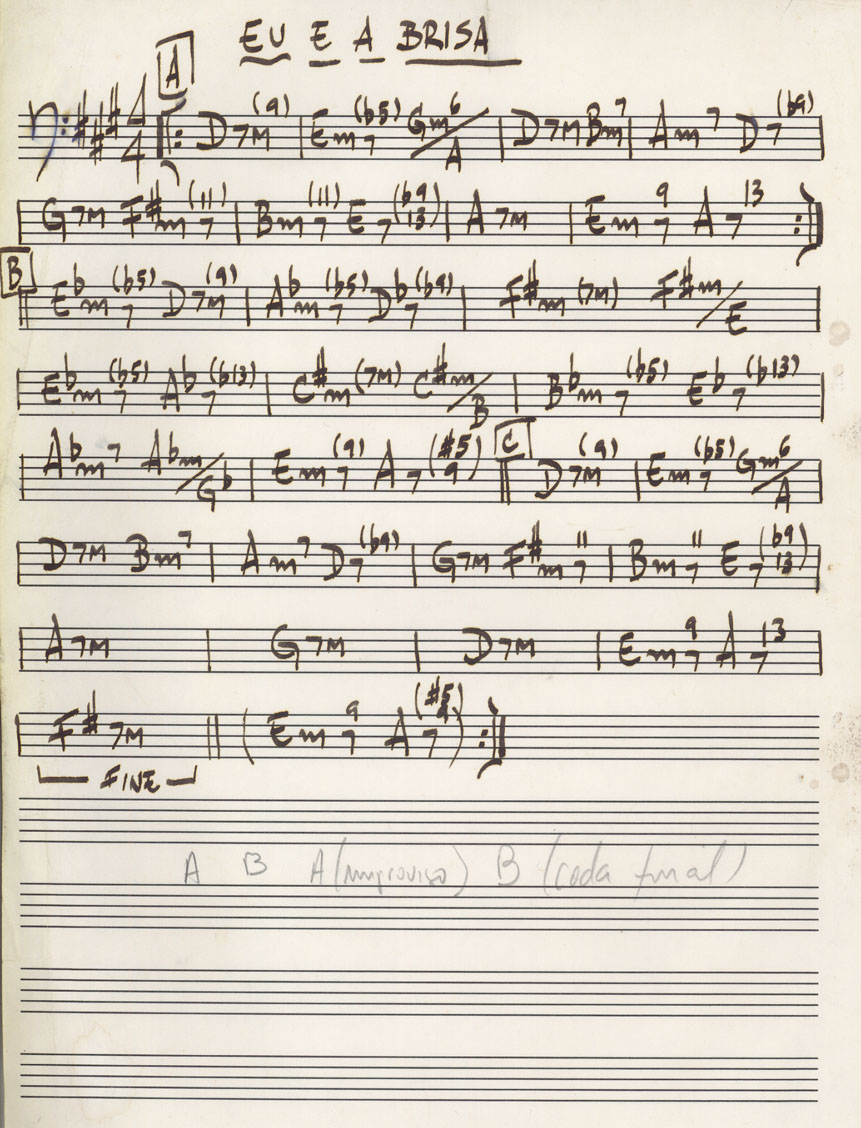 EU E A BRISA
A
4/4 D7M(9) | Em7(b5) Gm6/A | D7M Bm7 | Am7 D7(b9) |
G7M F#m7(11) | Bm7(11) E7(b9 13) | A7M | Em7 9 A7 13 :|
B
Ebm7(b5) D7M(9) | Abm7(b5) Db7(b9) | F#m(7M) F#m/E |
Ebm7(b5) Ab7(b13) | C#m(7M) C#m/B | Bbm7(b5) Eb7(b13) |
Abm7 Abm/Gb | Em7(9) A7(#5 9) || C D7M(9) | Em7(b5) Gm6/A |
D7M Bm7 | Am7 D7(b9) | G7M F#m7 11 | Bm7 11 E7(b9 13) |
A7M | G7M | D7M | Em7 9 A7 13 |
F#7M || (Em7 9 A7(#5 9)) :|
FINE
A B A (improviso) B (coda final)